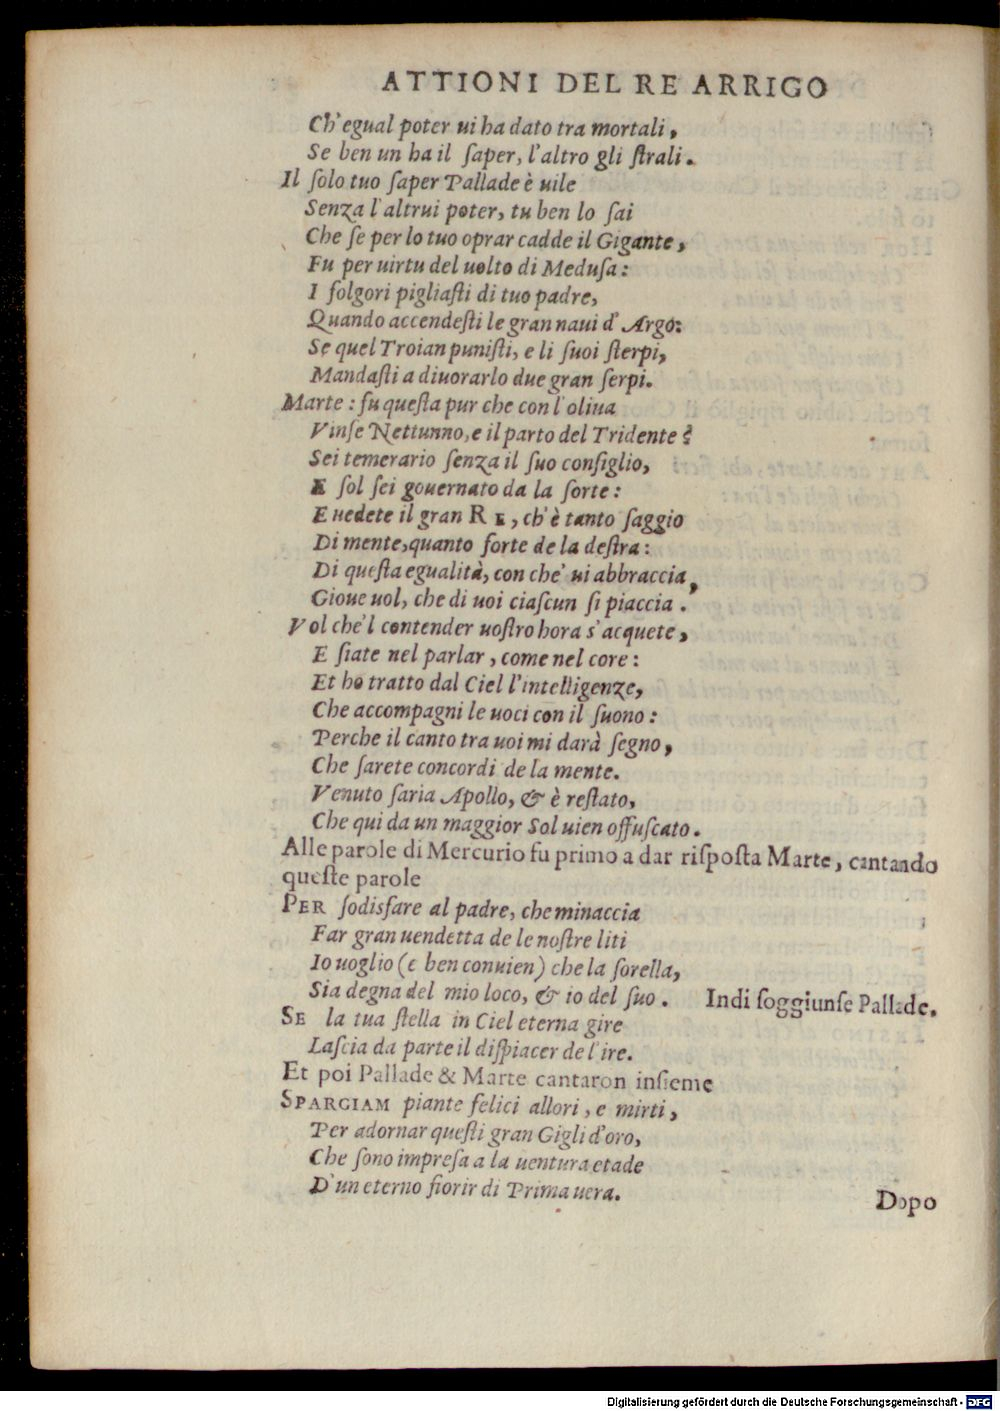 ATTIONI DEL RE ARRIGO
Ch'egual poter ui ha dato tra mortali,
Se ben un ha il ſaper, l'altro gli ſtrali.
Il ſolo tuo ſaper Pallade è uile
Senza l'altrui poter, tu ben lo ſai
Che ſe per lo tuo oprar cadde il Gigante,
Fu per uirtu del uolto di Meduſa:
I folgori pigliaſti di tuo padre,
Quando accendeſti le gran naui d'Argo:
Se quel Troian puniſti, e li ſuoi ſterpi,
Mandaſti a diuorarlo due gran ſerpi.
Marte: fu queſta pur che con l'oliua
Vinſe Nettunno, e il parto del Tridente?
Sei temerario ſenza il ſuo conſiglio,
E ſol ſei gouernato da la ſorte:
E uedete il gran RE, ch'è tanto ſaggio
Di mente, quanto forte de la deſtra:
Di queſta egualità, con che' ui abbraccia,
Gioue uol, che di uoi ciaſcun ſi piaccia.
Vol che'l contender uoſtro hora s'acquete,
E ſiate nel parlar, come nel core:
Et ho tratto dal Ciel l'intelligenze,
Che accompagni le uoci con il ſuono:
Perche il canto tra uoi mi darà ſegno,
Che ſarete concordi de la mente.
Venuto ſaria Apollo, & è reſtato,
Che qui da un maggior Sol uien offuſcato.
Alle parole di Mercurio fu primo a dar riſpoſta Marte, cantando
queſte parole
PER ſodisfare al padre, che minaccia
Far gran uendetta de le noſtre liti
Io uoglio (e ben conuien) che la ſorella,
Sia degna del mio loco, & io del ſuo. Indi ſoggiunſe Pallade.
SE la tua ſtella in Ciel eterna gire
Laſcia da parte il diſpiacer de l'ire.
Et poi Pallade & Marte cantaron inſieme
SPARGIAM piante felici allori, e mirti,
Per adornar queſti gran Gigli d'oro,
Che ſono impreſa a la uentura etade
D'un eterno fiorir di Primauera.
Dopo
Digitalisierung gefördert durch die Deutsche Forschungsgemeinschaft - DFG